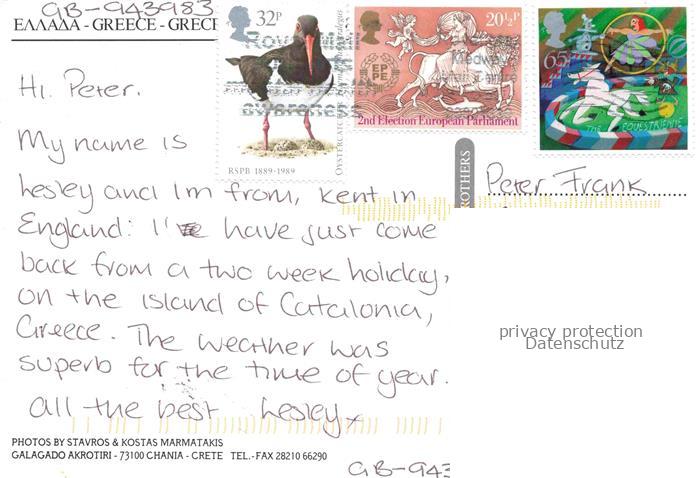 GB-943983
ΕΛΛΑΔΑ - GREECE - GRECE
32P
20½P
65
Hi Peter.
My name is
Lesley and Im from, Kent in
England: I've have just come
back from a two week holiday,
on the island of Catalonia,
Greece. The weather was
superb for the time of year.
All the best Lesley x
RSPB 1889-1989
OYSTERCATCHER
EP
PE
2nd Election European Parliament
Medway
THE EQUESTRIENNE
ROTHERS
Peter Frank
privacy protection
Datenschutz
PHOTOS BY STAVROS & KOSTAS MARMATAKIS
GALAGADO AKROTIRI - 73100 CHANIA - CRETE TEL.-FAX 28210 66290
GB-943